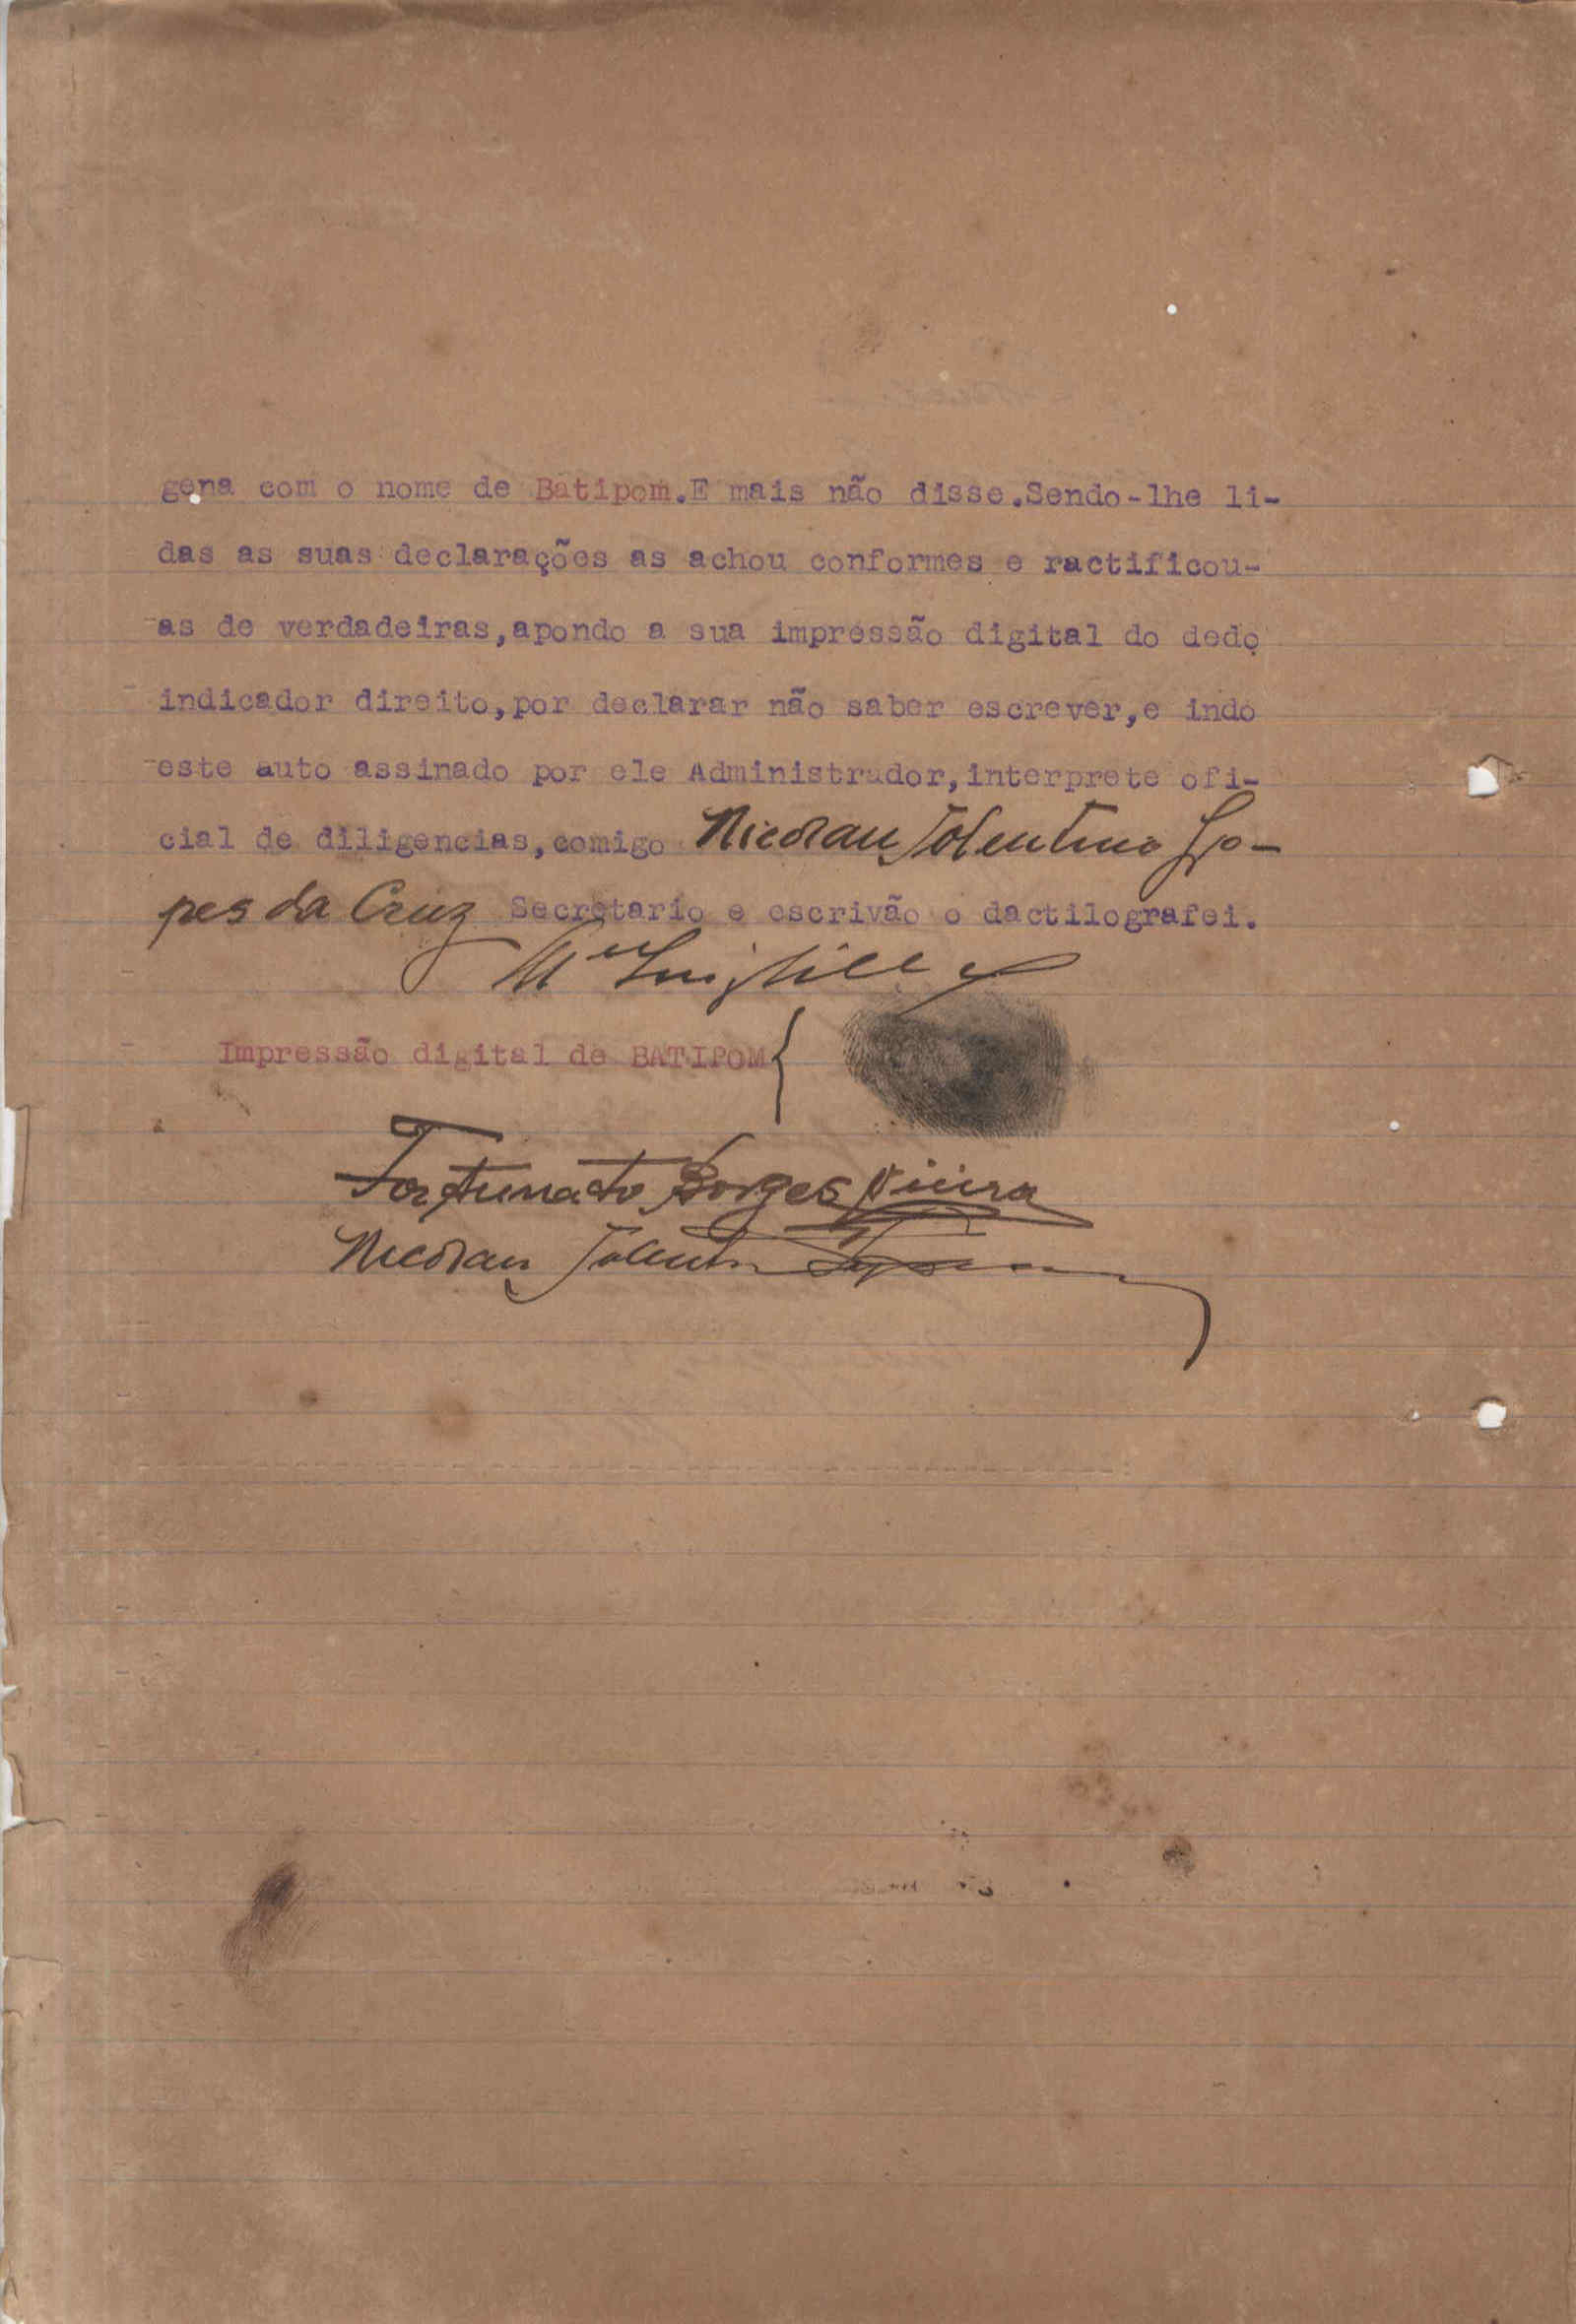 gena com o nome de Batipom.E mais não disse.Sendo-lhe li-
das as suas declarações as achou conformes e ractificou-
-as de verdadeiras,apondo a sua impressão digital do dedo
indicador direito,por declarar não saber escrever,e indo
este auto assinado por ele Administrador,interprete ofi-
cial de diligencias,comigo Nicolau Tolentino Lo-
pes da Cruz Secretario e escrivão o dactilografei.
Impressão digital de BATIPOM
Fortunato Borges Vieira
Nicolau Tolentino Lopes